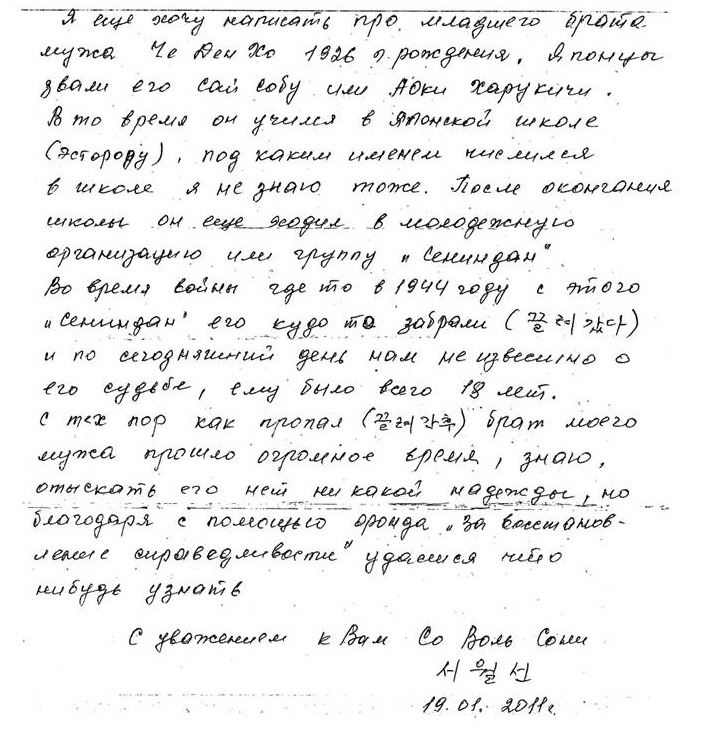 Я еще хочу написать про младшего брата
мужа Че Ден Хо 1926 г. рождения. Японцы
звали его Сай Собу или Аоки Харукичи.
В то время он учился в Японской школе
(Эстороду), под каким именем числился
в школе я не знаю тоже. После окончания
школы он еще ходил в молодежную
организацию или группу „Сениндан"
Во время войны где то в 1944 году с этого
„Сениндан" его кудо то забрали (끌레 갔다)
и по сегодняшний день нам не известно о
его судьбе, ему было всего 18 лет.
С тех пор как пропал (끌레 간후) брат моего
мужа прошло огромное время, знаю,
отыскать его нет ни какой надежды, но
благодаря с помощью фонда „За восстанов-
ление справедливости" удастся что
нибудь узнать
С уважением к Вам Со Воль Сони
서 월 선
19.01.2011г.